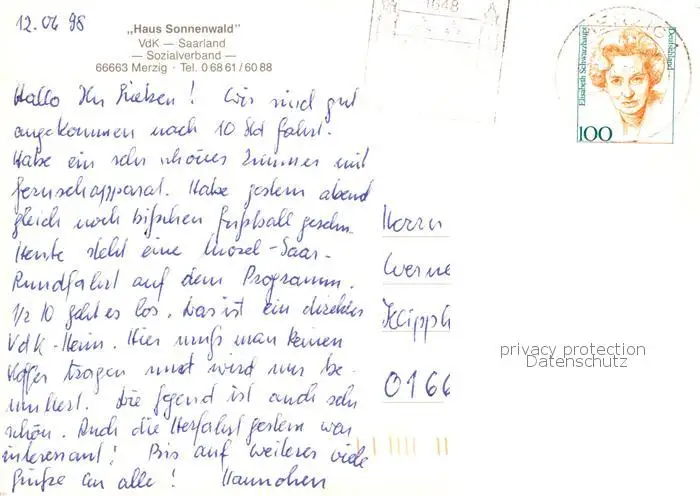 12.06 98
„Haus Sonnenwald"
VdK — Saarland
— Sozialverband —
66663 Merzig · Tel. 0 68 61 / 60 88
1648
Deutschland
Elisabeth Schwarzhaupt
100
Hallo Ihr Lieben! Wir sind gut
angekommen nach 10 Std fahrt.
Habe ein sehr schönes Zimmer mit
fernsehapparat. Habe gestern abend
gleich noch bißchen Fußball gesehn.
Heute steht eine Mosel-Saar-
Rundfahrt auf dem Programm.
1/2 10 geht es los. Das ist ein direktes
VdK-Heim. Hier muß man keinen
Koffer tragen und wird nur be-
muttert. Die Gegend ist auch sehr
schön. Auch die Herfahrt gestern war
interessant! Bis auf weiteres viele
Grüße an alle! Hannchen
Herrn
Werne
Klipph
0166
privacy protection
Datenschutz